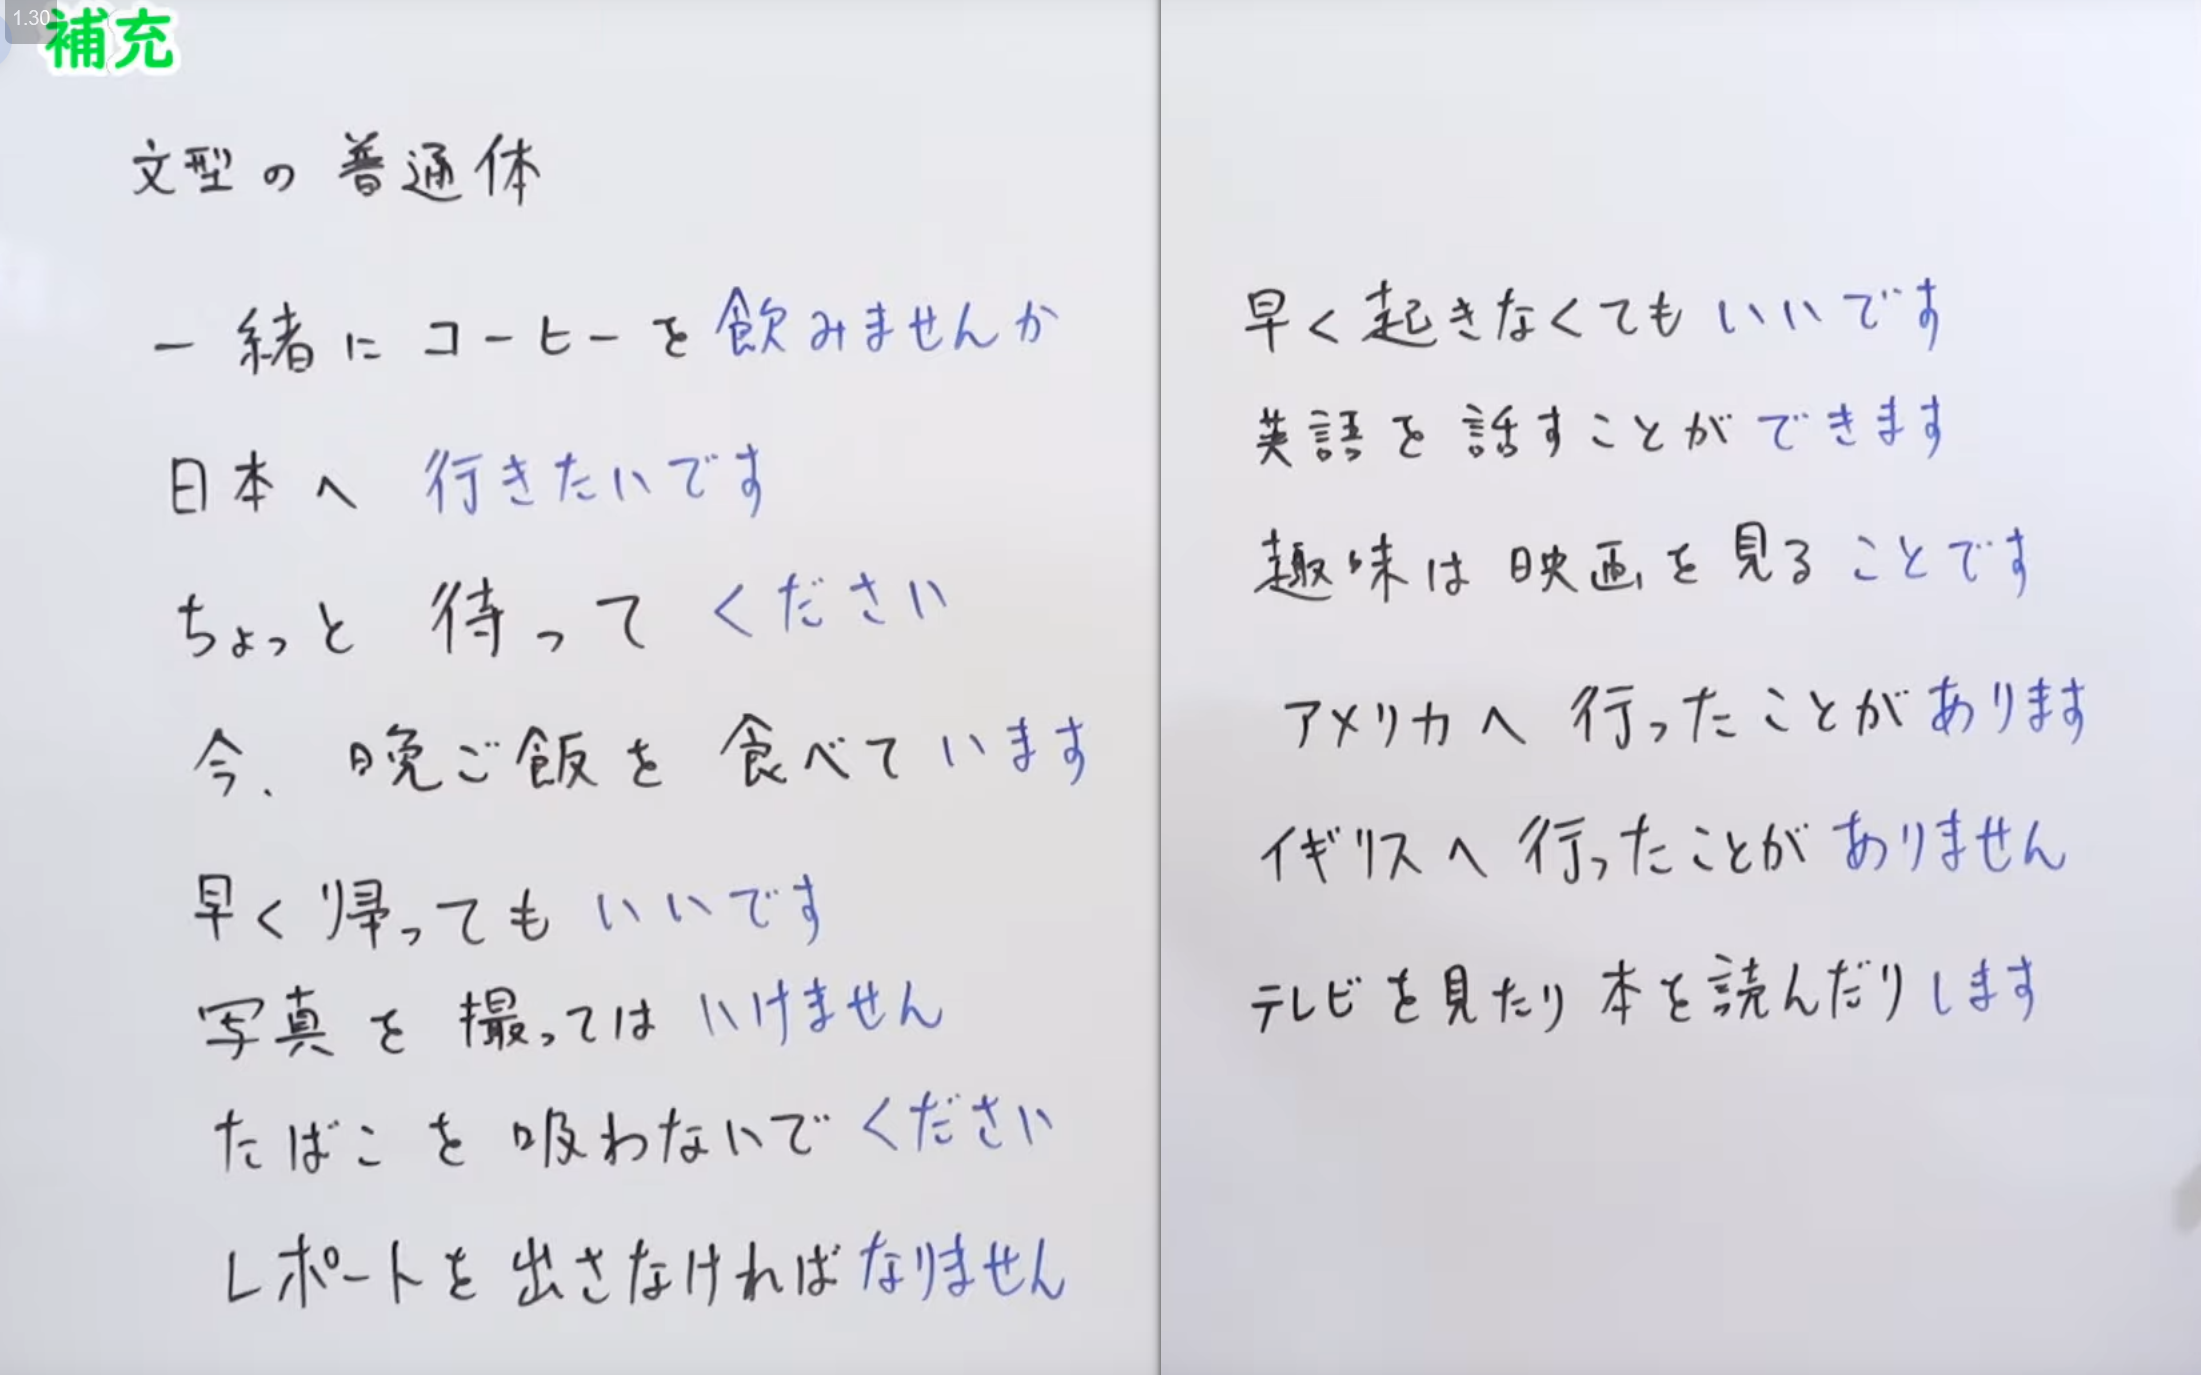 1.30
補充
文型の普通体
一緒にコーヒーを飲みませんか
日本へ 行きたいです
ちょっと 待ってください
今、晩ご飯を食べています
早く帰ってもいいです
写真を撮ってはいけません
たばこを吸わないでください
レポートを出さなければなりません
早く起きなくてもいいです
英語を話すことができます
趣味は映画を見ることです
アメリカへ行ったことがあります
イギリスへ行ったことがありません
テレビを見たり本を読んだりします